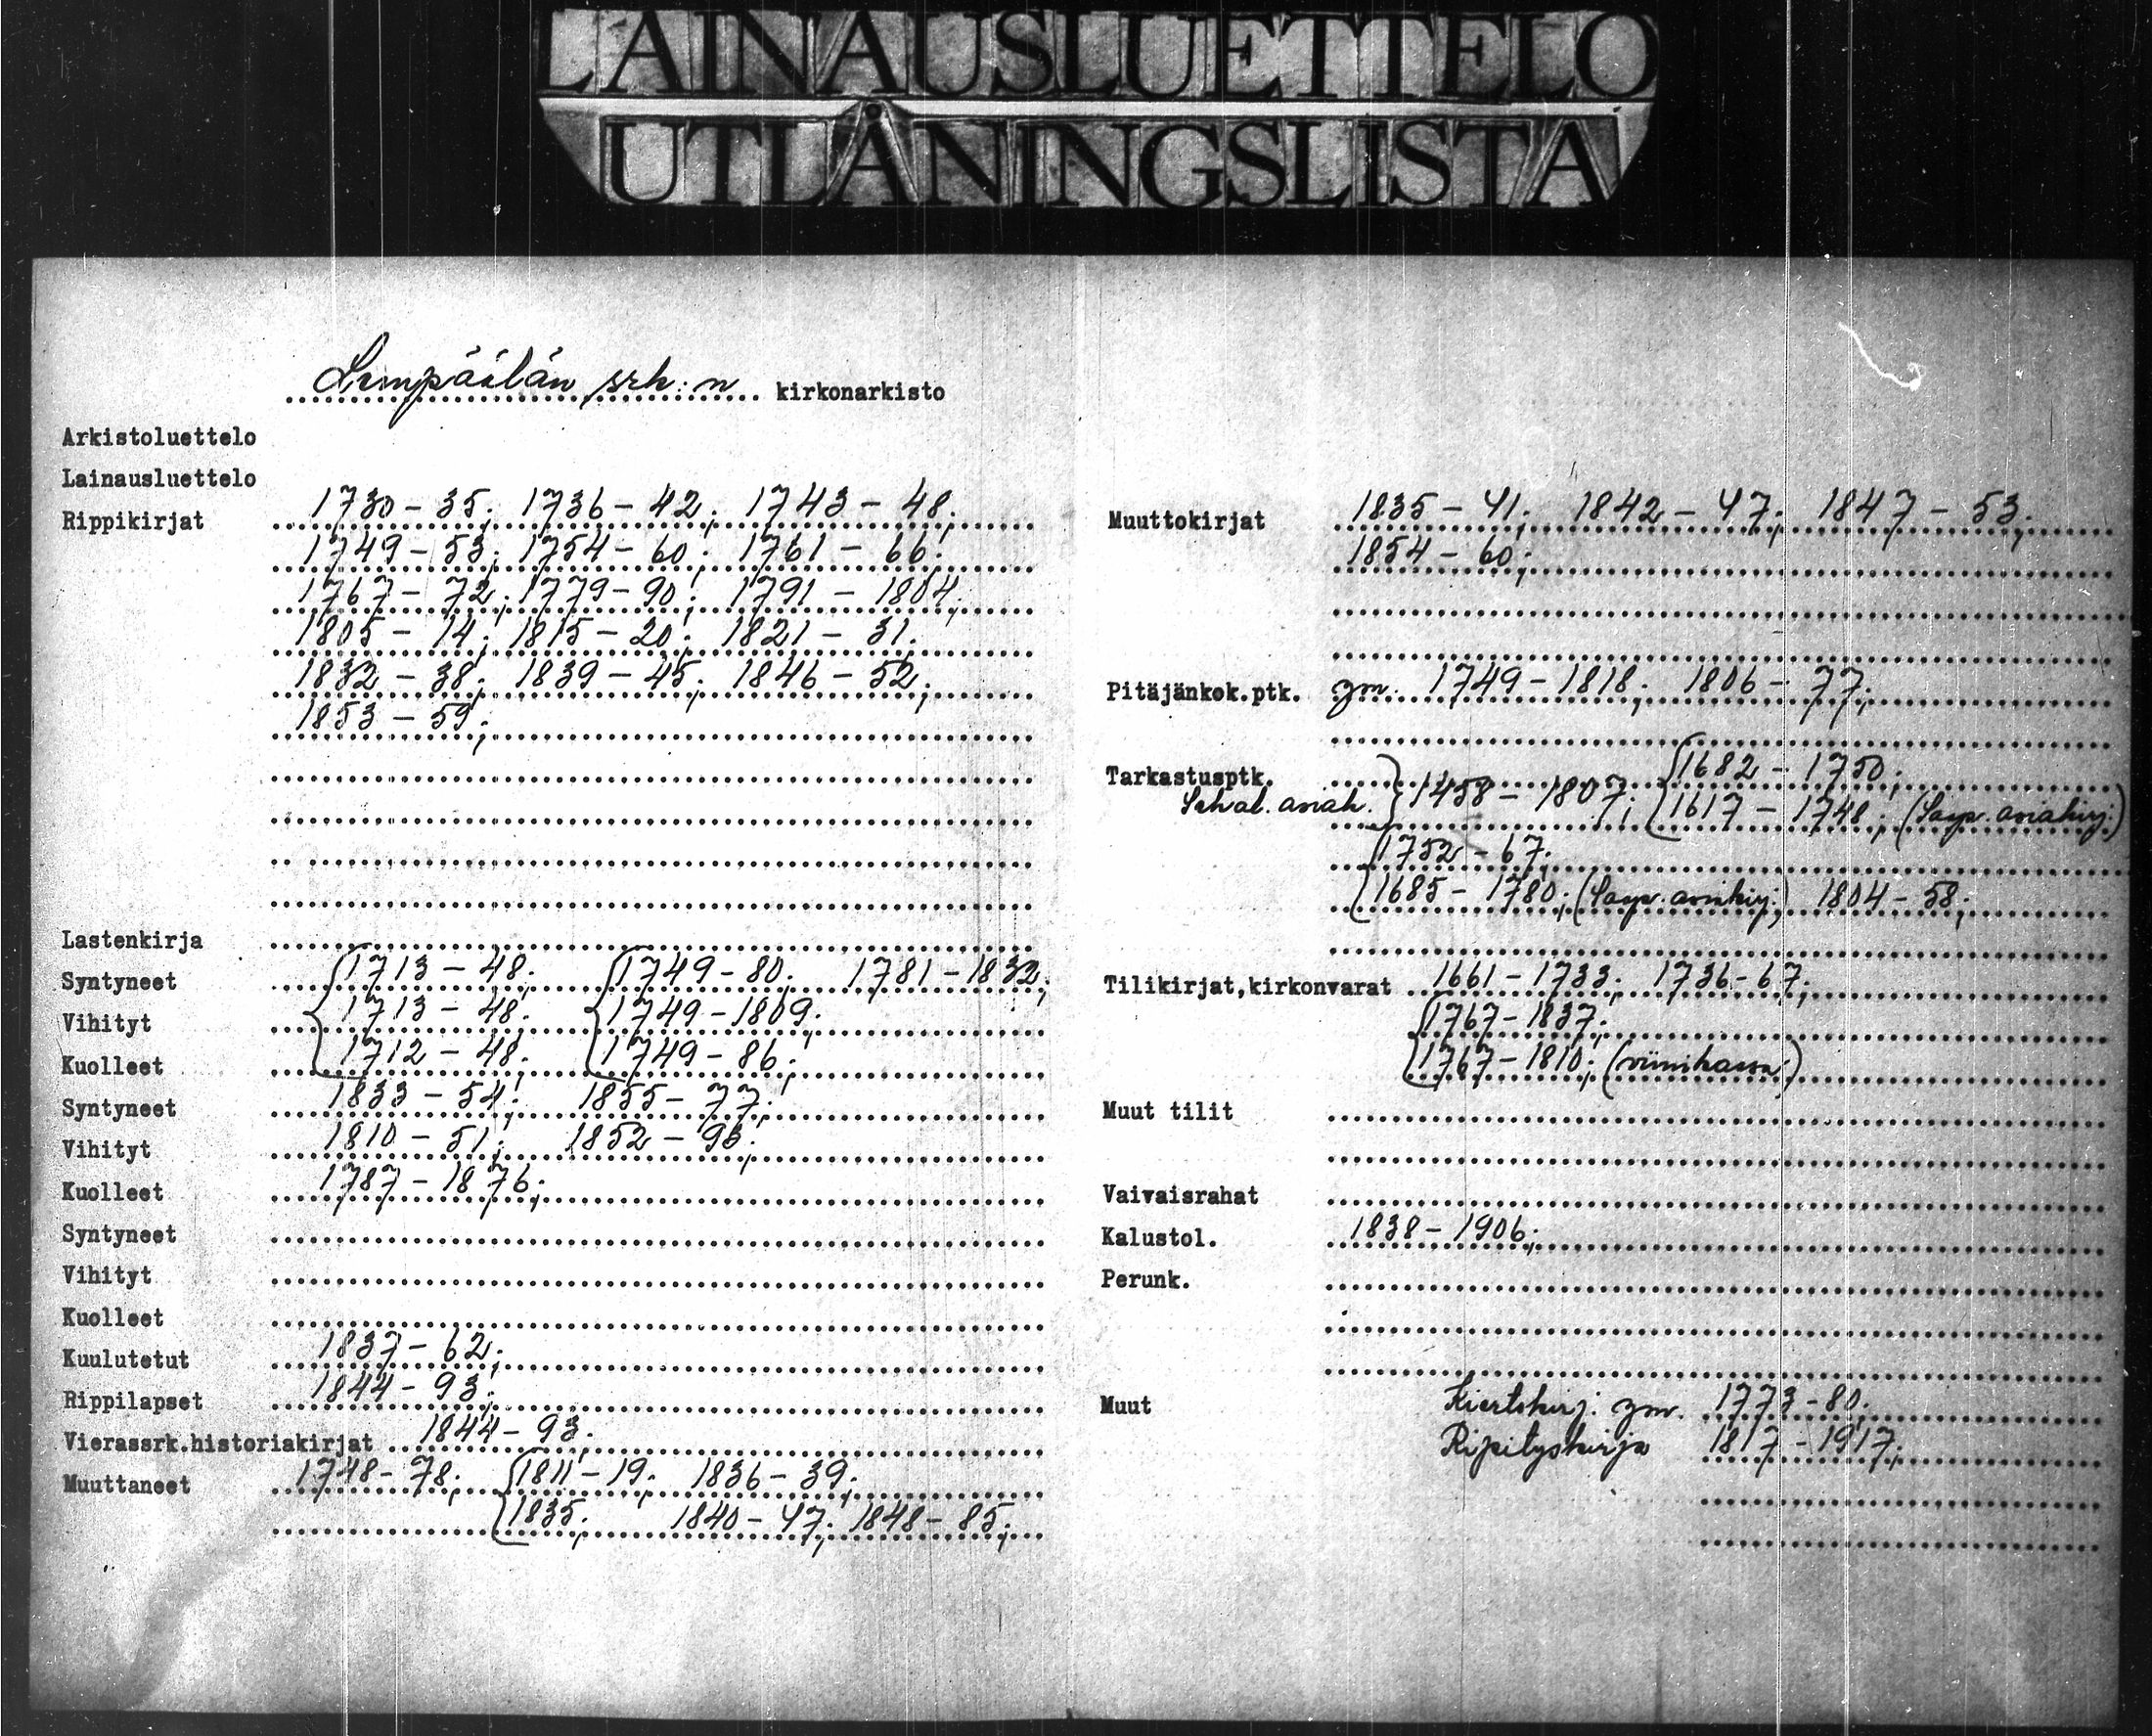 LAINAUSLUETTELO
UTLÅNINGSLISTA
Lempäälän srk:n kirkonarkisto
Arkistoluettelo
Lainausluettelo
Rippikirjat 1730-35; 1736-42; 1743-48;
1749-53; 1754-60; 1761-66;
1767-72; 1779-90; 1791-1804;
1805-14; 1815-20; 1821-31;
1832-38; 1839-45; 1846-52;
1853-59;
Lastenkirja
Syntyneet 1713-48; 1749-80; 1781-1832;
Vihityt 1713-48; 1749-1809;
Kuolleet 1712-48; 1749-86;
Syntyneet 1833-54; 1855-77;
Vihityt 1810-51; 1852-96;
Kuolleet 1787-1876;
Syntyneet
Vihityt
Kuolleet
Kuulutetut 1837-62;
Rippilapset 1844-93;
Vierassrk.historiakirjat 1844-93;
Muuttaneet 1748-78; 1811-19; 1836-39;
1835; 1840-47; 1848-85;
Muuttokirjat 1835-41; 1842-47; 1847-53;
1854-60;
Pitäjänkok.ptk. ym. 1749-1818; 1806-77;
Tarkastusptk. 1682-1750;
Sekal. asiak. 1458-1807; 1617-1748; (Saap. asiakirj.)
1752-67;
1685-1780; (Saap. asiakirj.) 1804-58;
Tilikirjat,kirkonvarat 1661-1733; 1736-67;
1767-1837;
1767-1810; (viinikassa)
Muut tilit
Vaivaisrahat
Kalustol. 1838-1906;
Perunk.
Muut Kiertokirj. ym. 1773-80;
Ripityskirja 1817-1917;